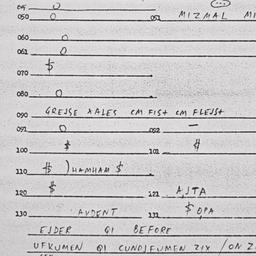 045 0
050 0 051 MIZMAL MI
060 0
061 0
070 $
080 0
090 GREJSE XALES CM FIST CM FLEJST
091 0 092 —
100 $ 101 #
110 $ ) HAMHAM $
120 $ 121 AJTA
130 AVDENT 131 $ OPA
EJDER QI BEFORE
UFKUMEN QI CUNDJFUMEN ZIX / ON Z